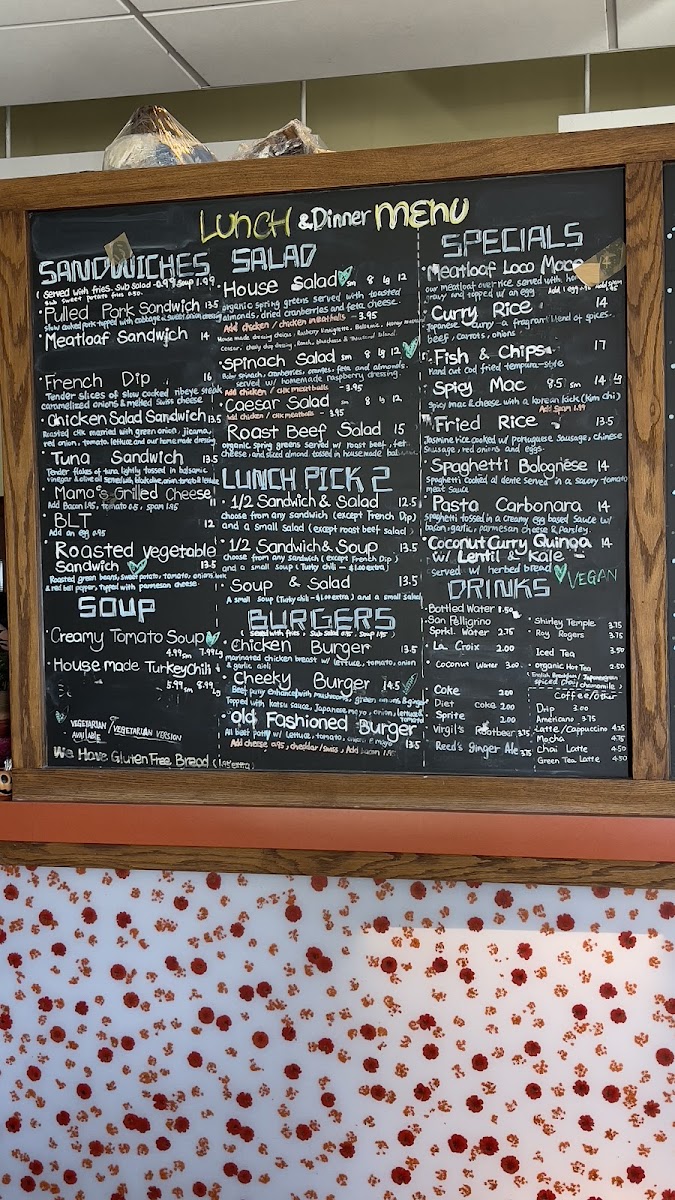 LUNCH & Dinner MENU
SANDWICHES
(Served with fries. Sub Salad 0.99 Soup 1.99
Sub sweet potato fries 0.50
Pulled Pork Sandwich 13.5
Slow cooked pork topped with cabbage & sweet onion dressing
Meatloaf Sandwich 14
French Dip 16
Tender slices of slow cooked ribeye steak
caramelized onions & melted Swiss cheese
Chicken Salad Sandwich 13.5
Roasted chk married with green onion, jicama,
red onion, tomato, lettuce and our home made dressing
Tuna Sandwich 13.5
Tender flakes of tuna, lightly tossed in balsamic
vinegar & olive oil
Mama's Grilled Cheese 11
Add Bacon 1.95, tomato 0.5, spam 1.95
BLT 12
Add an egg 0.95
Roasted vegetable
Sandwich 13.5
Roasted green beans, sweet potato, tomato, onions,
& red bell pepper, topped with parmesan cheese
SOUP
Creamy Tomato Soup
4.99 sm 7.99 Lg
House made Turkey Chili
5.99 sm 8.99 Lg
VEGETARIAN / VEGETARIAN VERSION
AVAILABLE
We Have Gluten Free Bread
SALAD
House Salad sm 8 lg 12
organic spring greens served with toasted
almonds, dried cranberries and feta cheese.
Add chicken / chicken meatballs - 3.95
House made dressing choices, Raspberry Vinaigrette, Balsamic, Honey mustard
Caesar, Ranch, bluecheese & Thousand Island
Spinach Salad sm 8 lg 12
Baby spinach, cranberries, oranges, feta and almonds.
served w/ homemade raspberry dressing.
Add chicken / chk meatballs - 3.95
Caesar Salad sm 8 lg 12
Add chicken / chk meatballs - 3.95
Roast Beef Salad 15
organic spring greens served w/ roast beef, feta
cheese, and sliced almond tossed in house made
LUNCH PICK 2
1/2 Sandwich & Salad 12.5
choose from any sandwich (except French Dip)
and a small salad (except roast beef salad)
1/2 Sandwich & Soup 13.5
Choose from any sandwich (except French Dip)
and a small soup (Turky chili - $1.00 extra)
Soup & Salad 13.5
A small soup (Turky chili - $1.00 extra) and a small salad
BURGERS
(Served with fries, Sub Salad 0.95, Soup 1.95)
Chicken Burger 13.5
marinated chicken breast w/ lettuce, tomato, onion
& garlic aioli
Cheeky Burger 14.5
Beef patty enhanced with mushrooms, green onions & ginger
Topped with katsu sauce, Japanese mayo, onion, lettuce &
tomato
Old Fashioned Burger
All Beef patty w/ lettuce, tomato, onion & mayo 13.5
Add cheese 0.95, cheddar/swiss, Add bacon
SPECIALS
Meatloaf Loco Moco
our meatloaf over rice served with
gravy and topped w/ an egg
Curry Rice 14
Japanese Curry - a fragrant blend of spices.
beef, carrots, onions
Fish & Chips 17
Hand cut Cod fried tempura-style
Spicy Mac 8.5 sm 14 Lg
Spicy Mac & cheese with a korean kick (Kim chi)
Add Spam 1.99
Fried Rice 13.5
Jasmine rice cooked w/ portuguese sausage, chinese
Sausage, red onions and eggs.
Spaghetti Bolognese 14
Spaghetti cooked al dente served in a savory tomato
meat sauce
Pasta Carbonara 14
Spaghetti tossed in a creamy egg based sauce w/
bacon, garlic, parmesan cheese & Parsley
Coconut Curry Quinoa 14
w/ Lentil & Kale
Served w/ herbed bread VEGAN
DRINKS
Bottled Water 1.50
San Pellegrino
Sprkl. Water 2.75
La Croix 2.00
Coconut Water 3.00
Coke 2.00
Diet coke 2.00
Sprite 2.00
Virgil's Rootbeer 3.75
Reed's Ginger Ale 3.75
Shirley Temple 3.75
Roy Rogers 3.75
Iced Tea 3.50
organic Hot Tea 2.50
(English Breakfast / Japanese green
spiced chai / chamomile)
Coffee/other
Drip 3.00
Americano 3.75
Latte/Cappuccino 4.25
Mocha 4.75
Chai Latte 4.50
Green Tea Latte 4.50